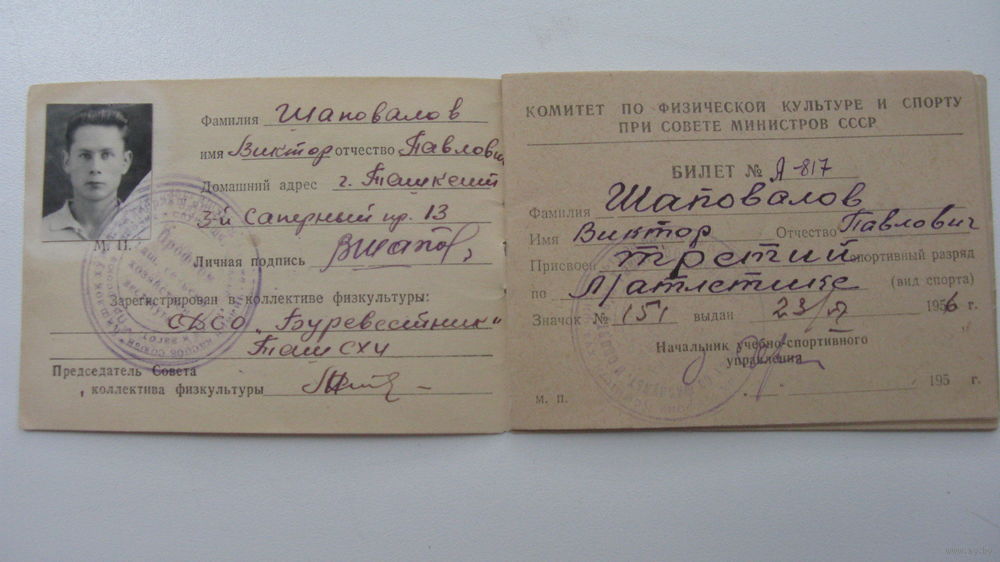 Фамилия Шаповалов
имя Виктор отчество Павлович
Домашний адрес г. Ташкент
3-й Саперный пр. 13
М. П.
Личная подпись
Зарегистрирован в коллективе физкультуры:
СДСО „Буревестник“
ТашСХИ
Председатель Совета
коллектива физкультуры
КОМИТЕТ ПО ФИЗИЧЕСКОЙ КУЛЬТУРЕ И СПОРТУ
ПРИ СОВЕТЕ МИНИСТРОВ СССР
БИЛЕТ № А-817
Фамилия Шаповалов
Имя Виктор Отчество Павлович
Присвоен третий спортивный разряд
по л/атлетике (вид спорта)
Значок № 151 выдан 23/V 1956 г.
Начальник учебно-спортивного
управления
195 г.
м. п.